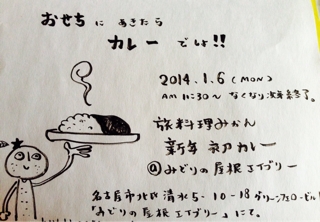 おせちに あきたら
カレー でしょ!!
2014.1.6 (MON)
AM 11:30〜 なくなり次第終了。
旅料理みかん
新年 初カレー
@みどりの屋根 エイブリー
名古屋市北区 清水5-10-18 グリーンフェロービル1
「みどりの屋根 エイブリー」にて。